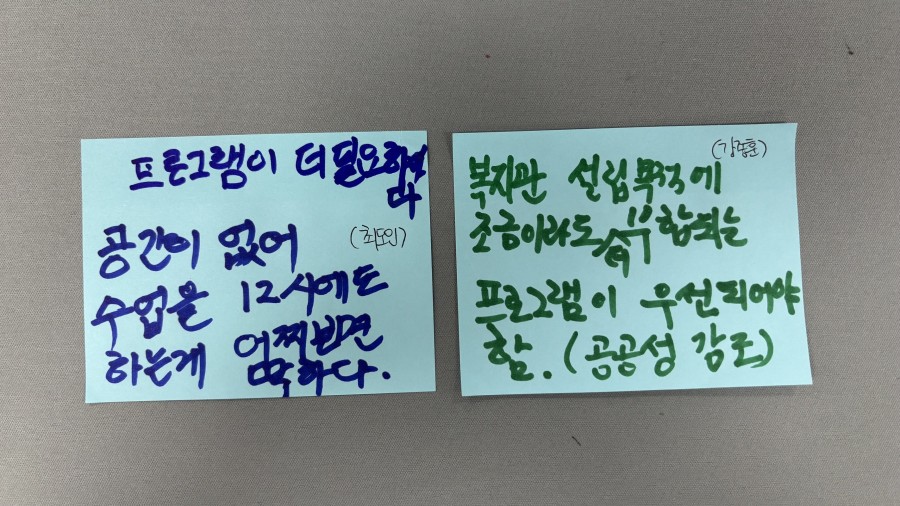 프로그램이 더 필요하
다
공간이 없어 (최도인)
수업을 12시에도
하는게 어찌보면
하다.
복지관 설립목적에
조금이라도 부합되는
프로그램이 우선되어야
함. (공공성 강조)